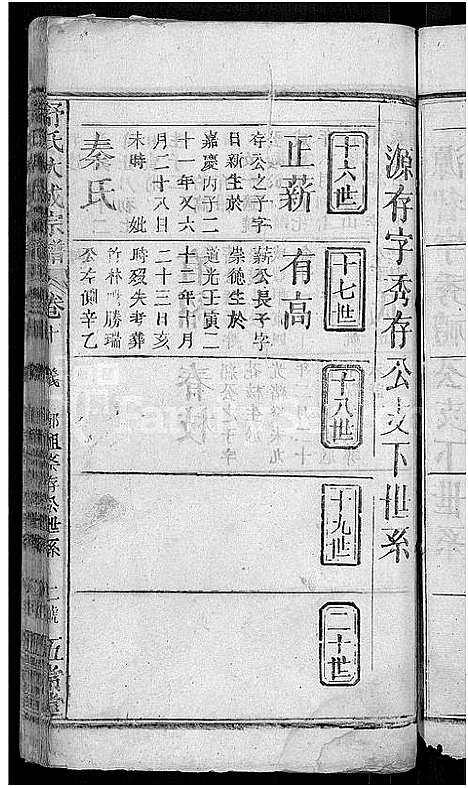 源存字秀存公支下世系
十六世
正薪
存公之子字
日新生於
嘉慶丙子二
十一年又六
月二十八日
未時 妣
秦氏
十七世
有高
薪公長子字
崇德生於
道光壬寅二
十二年十月
二十三日亥
時歿失考葬
竹林 勝瑞
公左側辛乙
十八世
十九世
二十世
舒氏大成宗譜 卷十
世系
五常堂